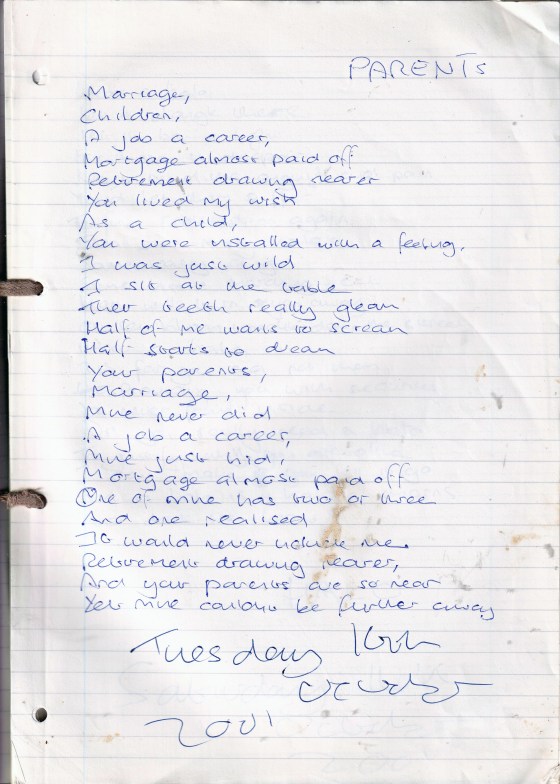 PARENTS
Marriage,
Children,
A job a career,
Mortgage almost paid off
Retirement drawing nearer
You lived my wish
As a child,
You were installed with a feeling,
I was just wild
I sit at the table
Their teeth really gleam
Half of me wants to scream
Half starts to dream
Your parents,
Marriage,
Mine never did
A job a career,
Mine just hid,
Mortgage almost paid off
One of mine has two or three
And one realised
It would never include me.
Retirement drawing nearer,
And your parents are so near
Yet mine couldn't be further away
Tuesday 16th
October
2001